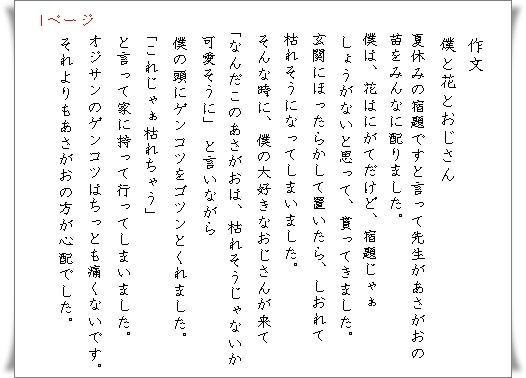 1ページ
作文
僕と花とおじさん
夏休みの宿題ですと言って先生があさがおの
苗をみんなに配りました。
僕は、花はにがてだけど、宿題じゃぁ
しょうがないと思って、貰ってきました。
玄関にほったらかして置いたら、しおれて
枯れそうになってしまいました。
そんな時に、僕の大好きなおじさんが来て
「なんだこのあさがおは、枯れそうじゃないか
可愛そうに」と言いながら
僕の頭にゲンコツをゴツンとくれました。
「これじゃぁ枯れちゃう」
と言って家に持って行ってしまいました。
オジサンのゲンコツはちっとも痛くないです。
それよりもあさがおの方が心配でした。